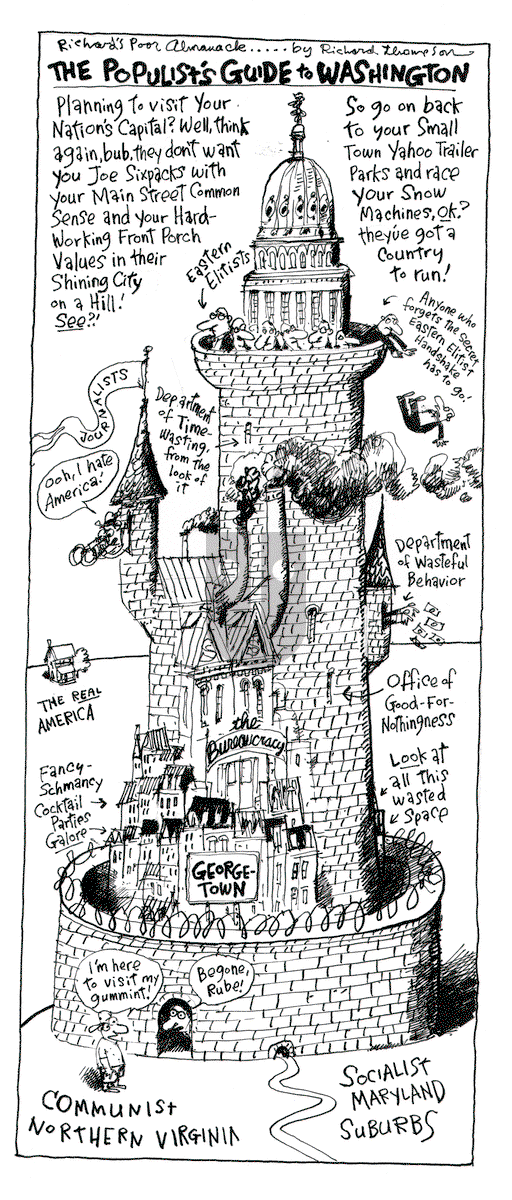 Richard's Poor Almanack.....by Richard Thompson
THE POPULIST'S GUIDE to WASHINGTON
Planning to visit Your
Nation's Capital? Well, think
again, bub. they don't want
you Joe Sixpacks with
your Main Street Common
Sense and your Hard-
Working Front Porch
Values in their
Shining City
on a Hill!
See?!
So go on back
to your Small
Town Yahoo Trailer
Parks and race
your Snow
Machines, OK?
they've got a
Country
to run!
Eastern
Elitists
Anyone who
forgets the secret
Eastern Elitist
Handshake
has to go!
JOURNALISTS
Ooh, I hate
America!
Department
of Time-
Wasting,
from the
look of
it
Department
of Wasteful
Behavior
THE REAL
AMERICA
Office of
Good-For-
Nothingness
the
Bureaucracy
Fancy-
Schmancy
Cocktail
Parties
Galore
Look at
all this
wasted
Space
GEORGE-
TOWN
I'm here
to visit my
gummint!
Begone,
Rube!
COMMUNIST
NORTHERN VIRGINIA
SOCIALIST
MARYLAND
SUBURBS